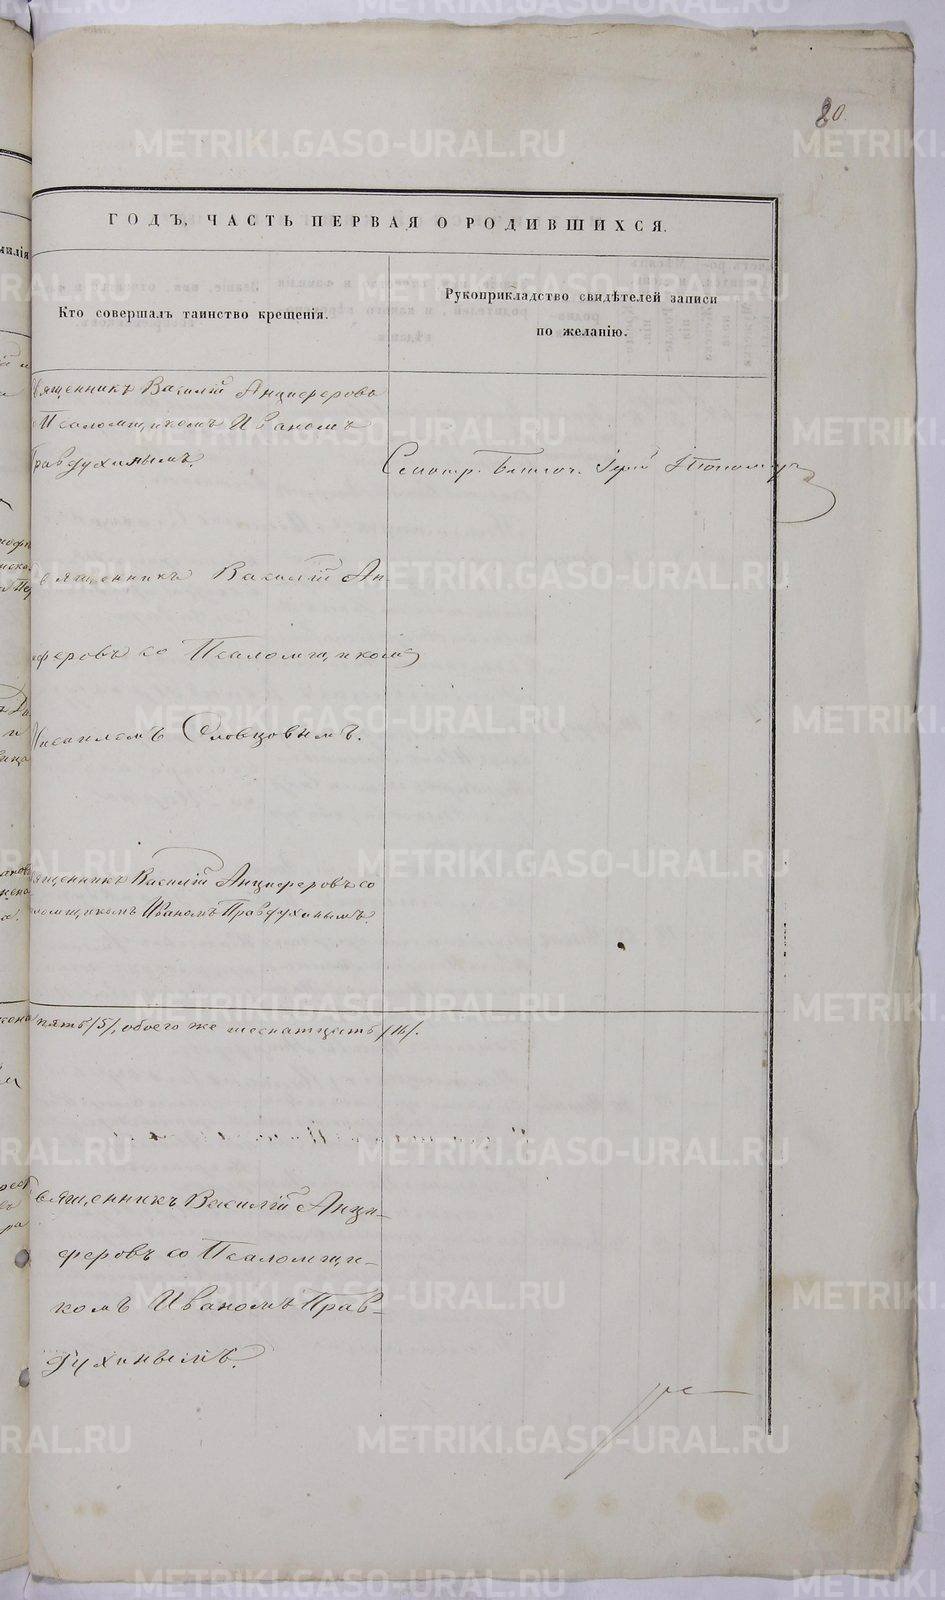 80.
ГОДЪ, ЧАСТЬ ПЕРВАЯ О РОДИВШИХСЯ.
Кто совершалъ таинство крещенія.
Рукоприкладство свидѣтелей записи
по желанію.
вященникъ Василій Анциферовъ
Псаломщикомъ Иваномъ
Правдухинымъ.
Смотр. Благоч. Іерей
вященникъ Василій Ан
феровъ со Псаломщикомъ
Мисаиломъ Словцовымъ.
ященникъ Василій Анциферовъ со
ломщикомъ Иваномъ Правдухинымъ.
пять /5/, обоего же шеснатцать /16/.
вященникъ Василій Анци-
феровъ со Псаломщи-
комъ Иваномъ Прав-
духинымъ.
METRIKI.GASO-URAL.RU